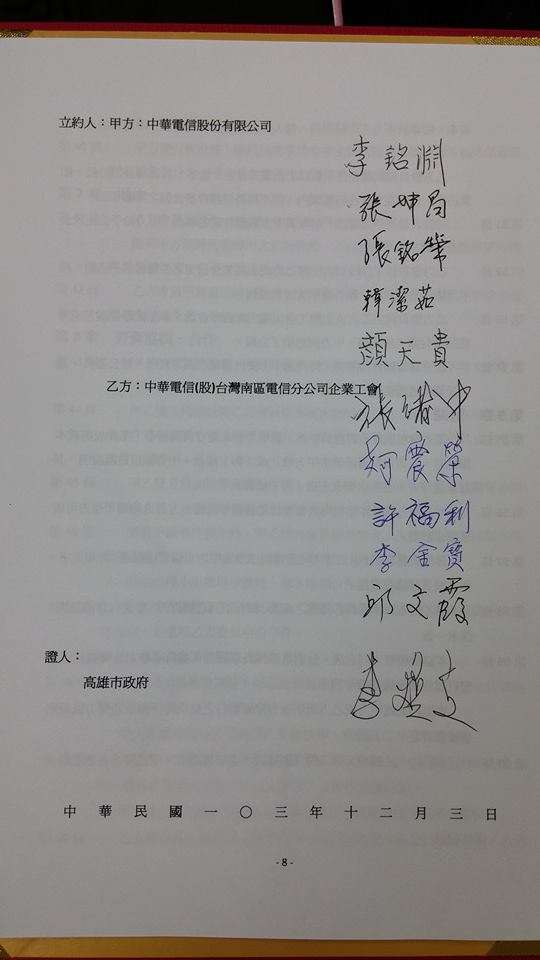 立約人：甲方：中華電信股份有限公司
李銘淵
張坤局
張銘
韓潔茹
顏天貴
乙方：中華電信(股)台灣南區電信分公司企業工會
張緒中
柯震榮
許福利
李金寶
邱文霞
證人：
高雄市政府
李
中華民國一〇三年十二月三日
- 8 -